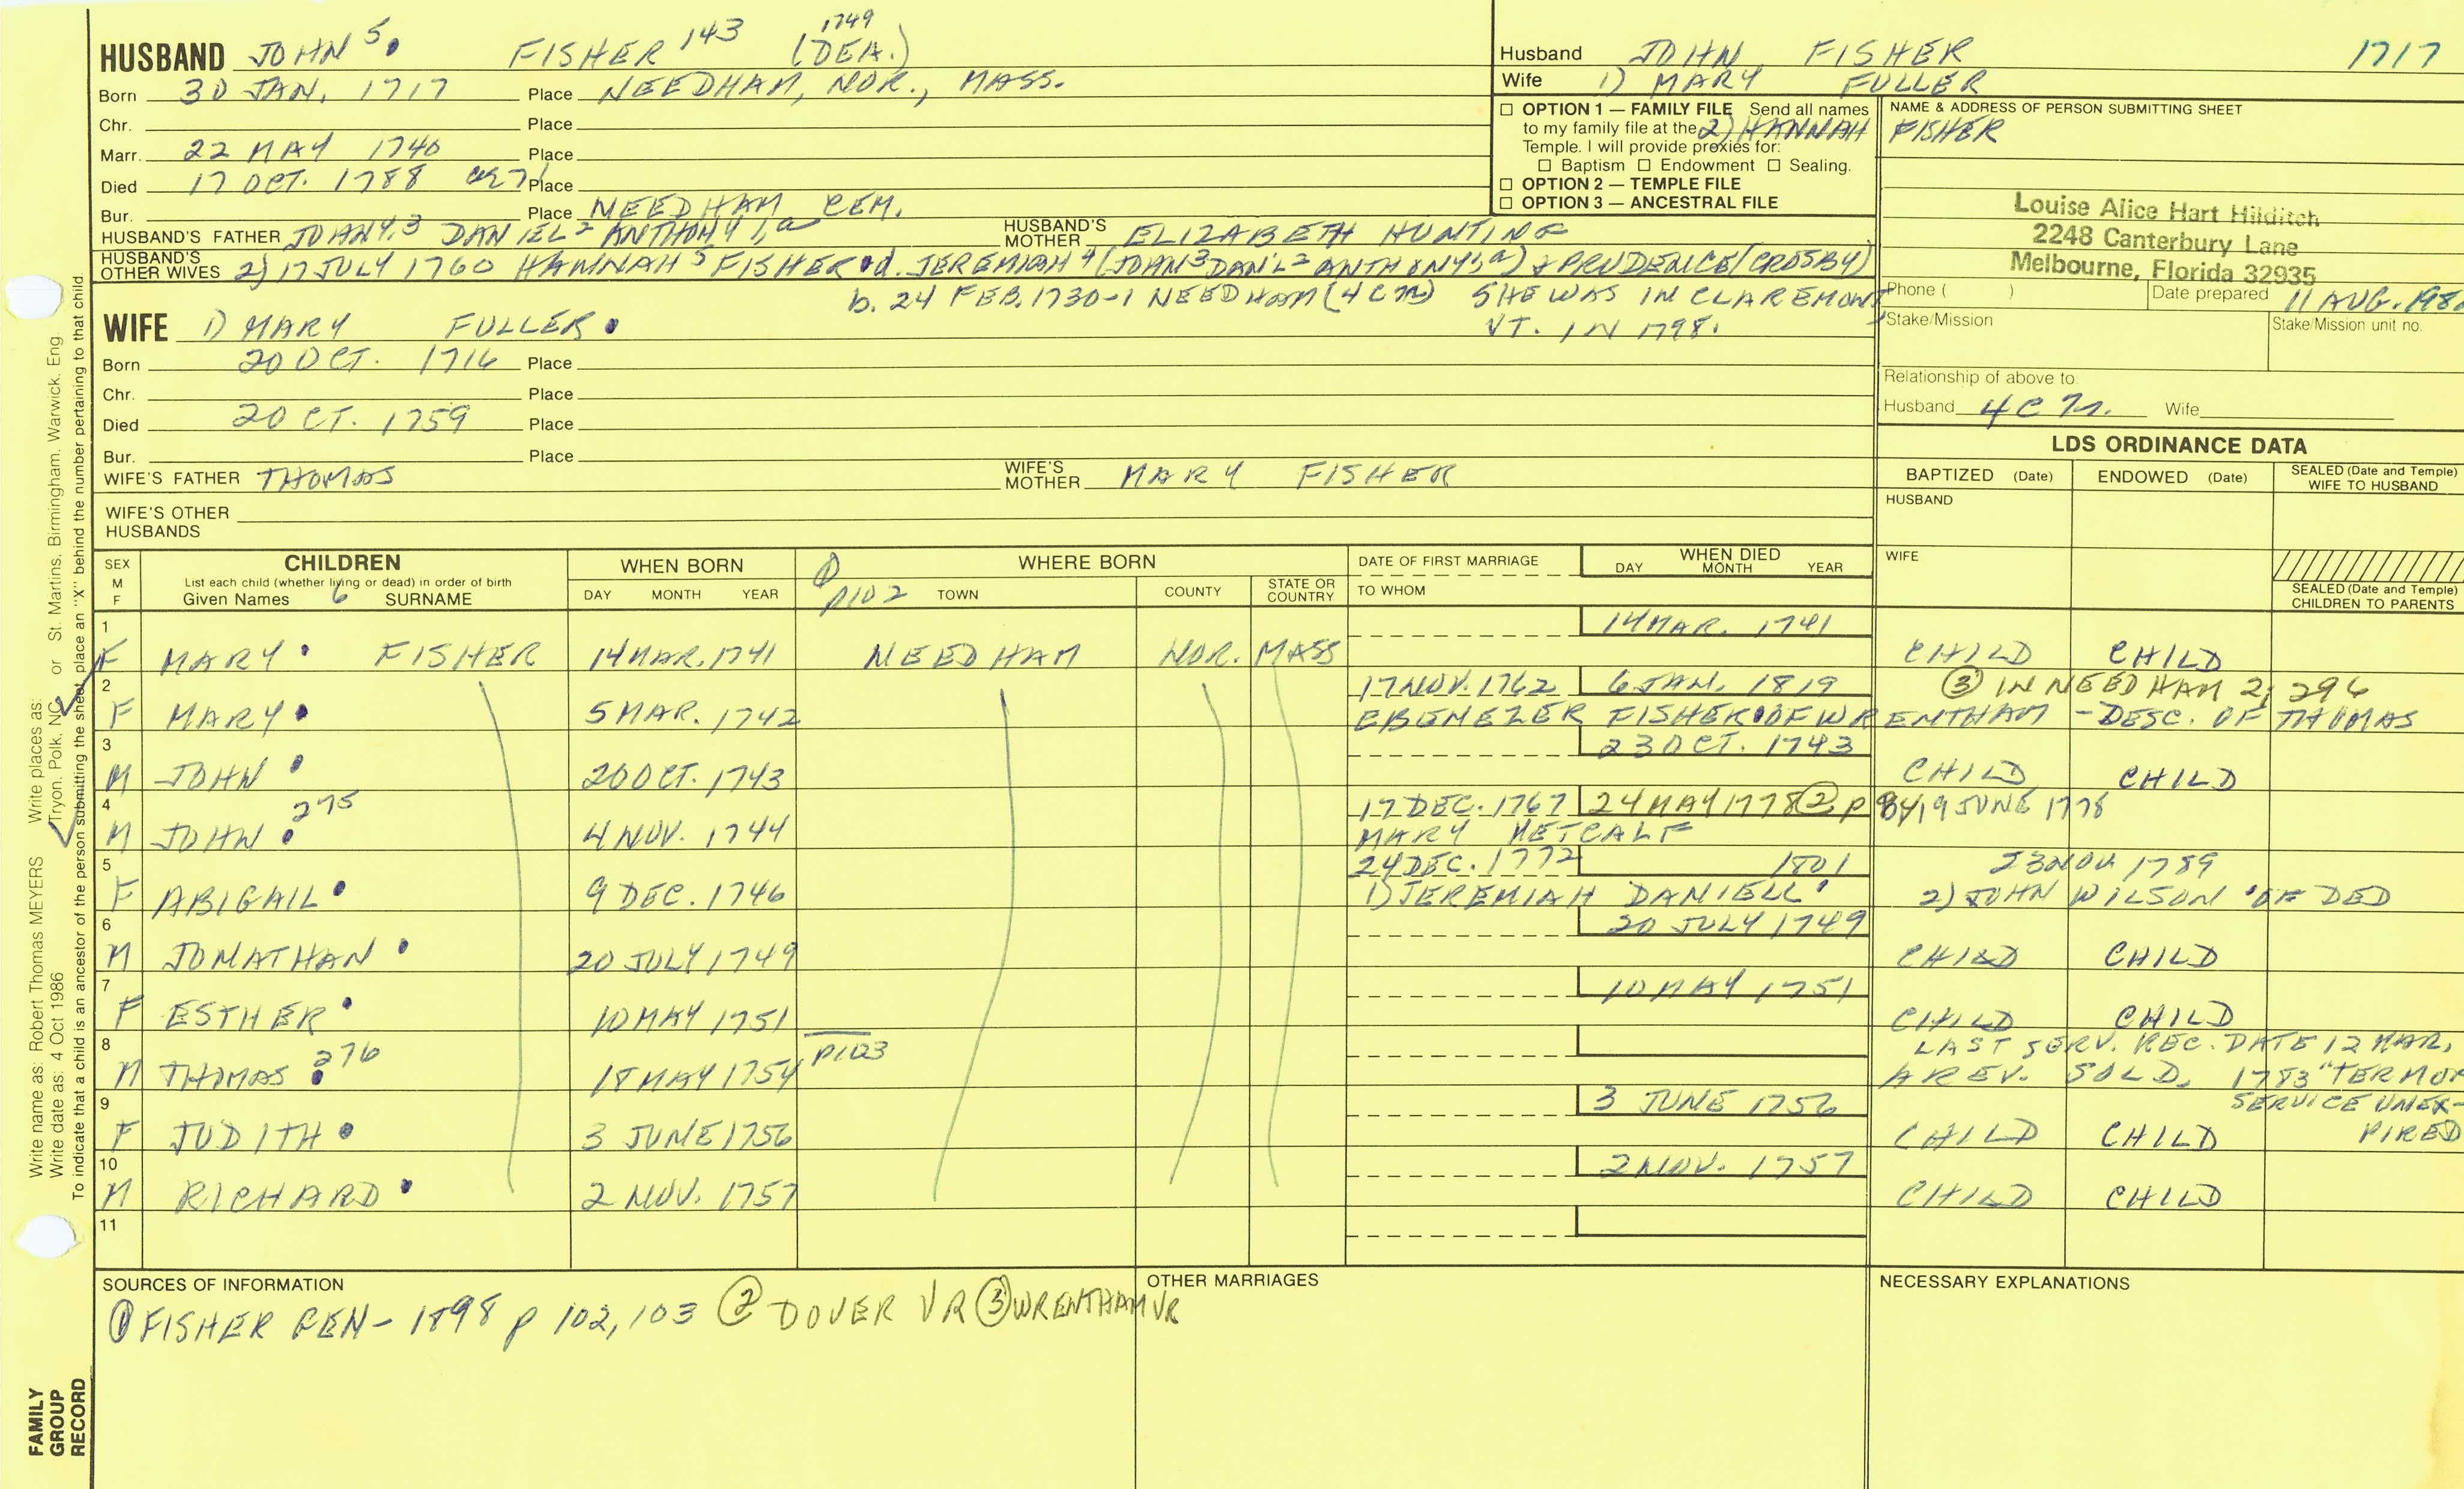 HUSBAND JOHN 5. FISHER 143 (DEA.) 1749
Born 30 JAN. 1717 Place NEEDHAM, NOR., MASS.
Chr. Place
Marr. 22 MAY 1740 Place
Died 17 OCT. 1788 Place
Bur. Place NEEDHAM CEM.
HUSBAND'S FATHER JOHN 4,3 DANIEL 2 ANTHONY 1,a HUSBAND'S MOTHER ELIZABETH HUNTING
HUSBAND'S OTHER WIVES 2) 17 JULY 1760 HANNAH 5 FISHER d. JEREMIAH 4 (JOHN 3 DAN'L 2 ANTHONY 1,a) & PRUDENCE (CROSBY)
b. 24 FEB. 1730-1 NEEDHAM (4CM) SHE WAS IN CLAREMONT
VT. IN 1798.
WIFE 1) MARY FULLER
Born 20 OCT. 1716 Place
Chr. Place
Died 2 OCT. 1759 Place
Bur. Place
WIFE'S FATHER THOMAS WIFE'S MOTHER MARY FISHER
WIFE'S OTHER HUSBANDS
Husband JOHN FISHER 1717
Wife 1) MARY FULLER
☐ OPTION 1 — FAMILY FILE Send all names
to my family file at the 2) HANNAH FISHER
Temple. I will provide proxies for:
☐ Baptism ☐ Endowment ☐ Sealing.
☐ OPTION 2 — TEMPLE FILE
☐ OPTION 3 — ANCESTRAL FILE
NAME & ADDRESS OF PERSON SUBMITTING SHEET
Louise Alice Hart Hilditch
2248 Canterbury Lane
Melbourne, Florida 32935
Phone ( ) Date prepared 11 AUG. 198
Stake/Mission Stake/Mission unit no.
Relationship of above to
Husband 4CM. Wife
LDS ORDINANCE DATA
BAPTIZED (Date) ENDOWED (Date) SEALED (Date and Temple) WIFE TO HUSBAND
HUSBAND
WIFE
SEALED (Date and Temple) CHILDREN TO PARENTS
SEX M F CHILDREN WHEN BORN WHERE BORN DATE OF FIRST MARRIAGE WHEN DIED
List each child (whether living or dead) in order of birth
Given Names 6 SURNAME DAY MONTH YEAR ① P102 TOWN COUNTY STATE OR COUNTRY TO WHOM DAY MONTH YEAR
1 14 MAR. 1741
F MARY FISHER 14 MAR. 1741 NEEDHAM NOR. MASS CHILD CHILD
2 17 NOV. 1762 6 JAN. 1819 ③ IN NEEDHAM 2; 296
F MARY 5 MAR. 1742 EBENEZER FISHER OF WRENTHAM - DESC. OF THOMAS
3 23 OCT. 1743
M JOHN 20 OCT. 1743 CHILD CHILD
4 275 17 DEC. 1767 24 MAY 1778 ② P 84 19 JUNE 1778
M JOHN 4 NOV. 1744 MARY METCALF
5 24 DEC. 1772 1801 23 NOV. 1789
F ABIGAIL 9 DEC. 1746 1) JEREMIAH DANIELL 2) JOHN WILSON OF DED
6 20 JULY 1749
M JONATHAN 20 JULY 1749 CHILD CHILD
7 10 MAY 1751
F ESTHER 10 MAY 1751 CHILD CHILD
8 276 P103 LAST SERV. REC. DATE 12 MAR.
M THOMAS 18 MAY 1754 A REV. SOLD. 1783 "TERM OF
SERVICE UNEX-
PIRED
9 3 JUNE 1756
F JUDITH 3 JUNE 1756 CHILD CHILD
10 2 NOV. 1757
M RICHARD 2 NOV. 1757 CHILD CHILD
11
SOURCES OF INFORMATION OTHER MARRIAGES NECESSARY EXPLANATIONS
① FISHER GEN - 1898 p 102, 103 ② DOVER VR ③ WRENTHAM VR
Write name as: Robert Thomas MEYERS Write places as:
Write date as: 4 Oct 1986 Tryon, Polk, NC or St. Martins, Birmingham, Warwick, Eng
To indicate that a child is an ancestor of the person submitting the sheet, place an "X" behind the number pertaining to that child.
FAMILY
GROUP
RECORD